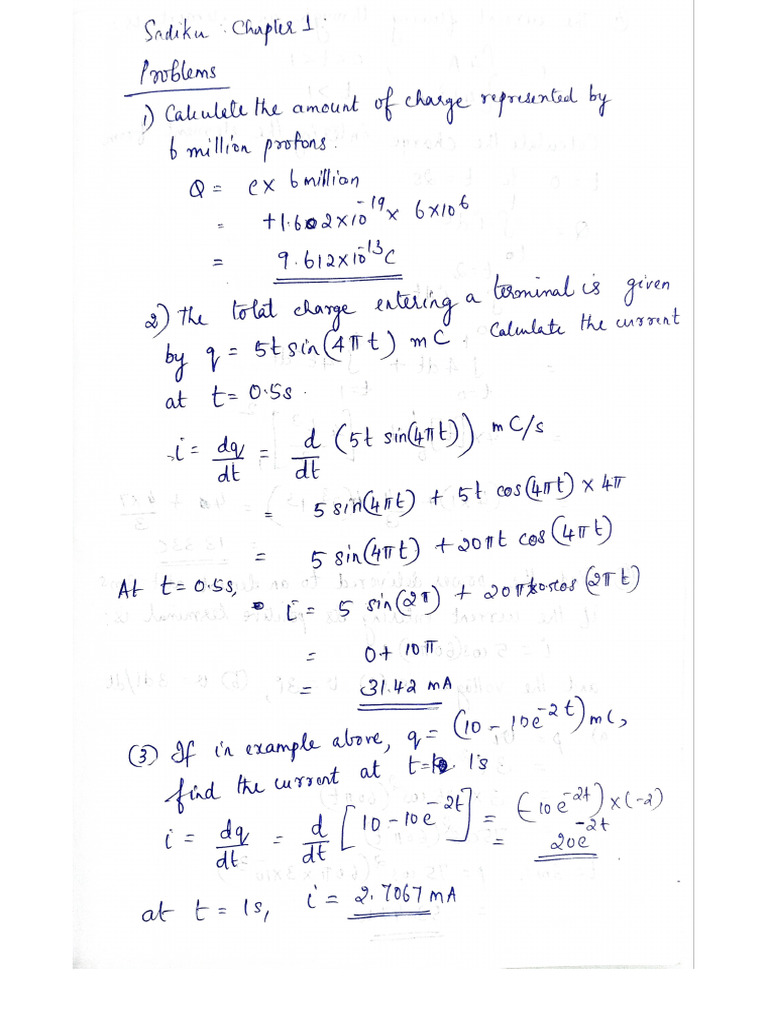 Sadiku . Chapter 1 .
Problems
1) Calculate the amount of charge represented by
6 million protons :
Q = e x 6 million
= +1.602x10^-19 x 6x10^6
= 9.612x10^-13 C
2) The total charge entering a terminal is given
by q = 5t sin(4πt) mC . Calculate the current
at t = 0.5s .
i = dq/dt = d/dt (5t sin(4πt)) mC/s
= 5 sin(4πt) + 5t cos(4πt) x 4π
= 5 sin(4πt) + 20πt cos(4πt)
At t = 0.5s, i = 5 sin(2π) + 20π cos(2πt)
= 0 + 10π
= 31.42 mA
(3) If in example above, q = (10 - 10e^-2t) mC,
find the current at t = 1s.
i = dq/dt = d/dt [10 - 10e^-2t] = (-10e^-2t) x (-2)
= 20e^-2t
at t = 1s, i = 2.7067 mA